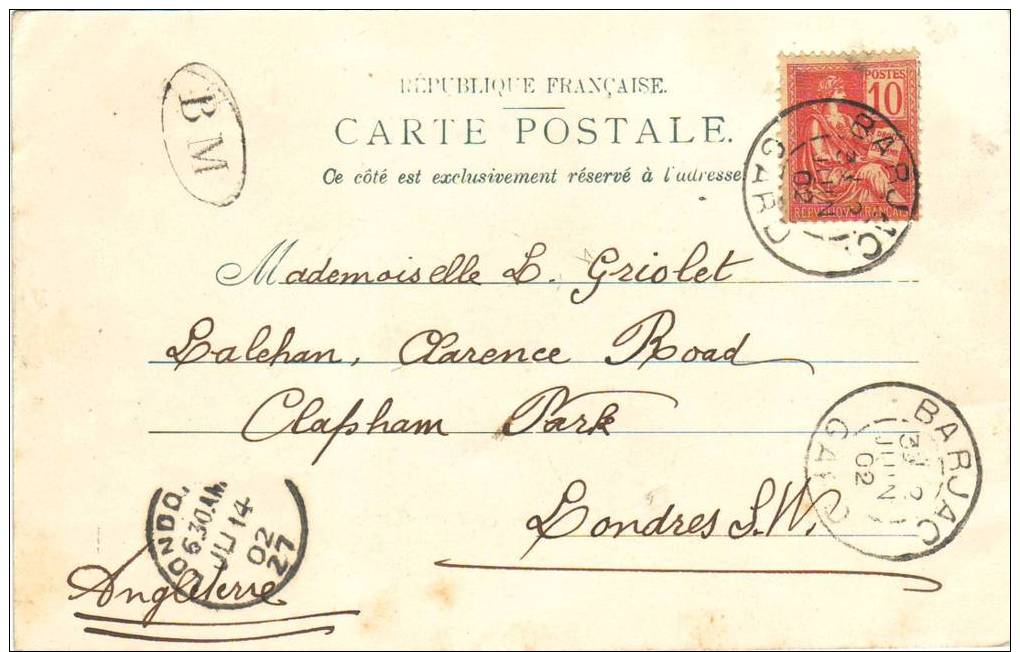 BM
RÉPUBLIQUE FRANÇAISE.
CARTE POSTALE.
Ce côté est exclusivement réservé à l'adresse
POSTES
10
REPUBLIQUE FRANÇAISE
BARJAC
JUIN
02
GARD
Mademoiselle L. Griolet
Lalehan, Clarence Road
Clapham Park
Londres S.W.
Angleterre
BARJAC
JUIN
02
GARD
LONDO
6.30 AM
JU 14
02
27